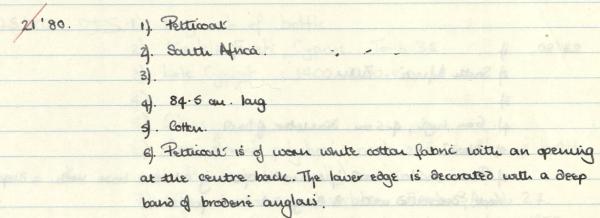 21'80. 1). Petticoat
2). South Africa.
3).
4). 84.5 cm. long
5). Cotton.
6). Petticoat is of worn white cotton fabric with an opening
at the centre back. The lower edge is decorated with a deep
band of broderie anglais.